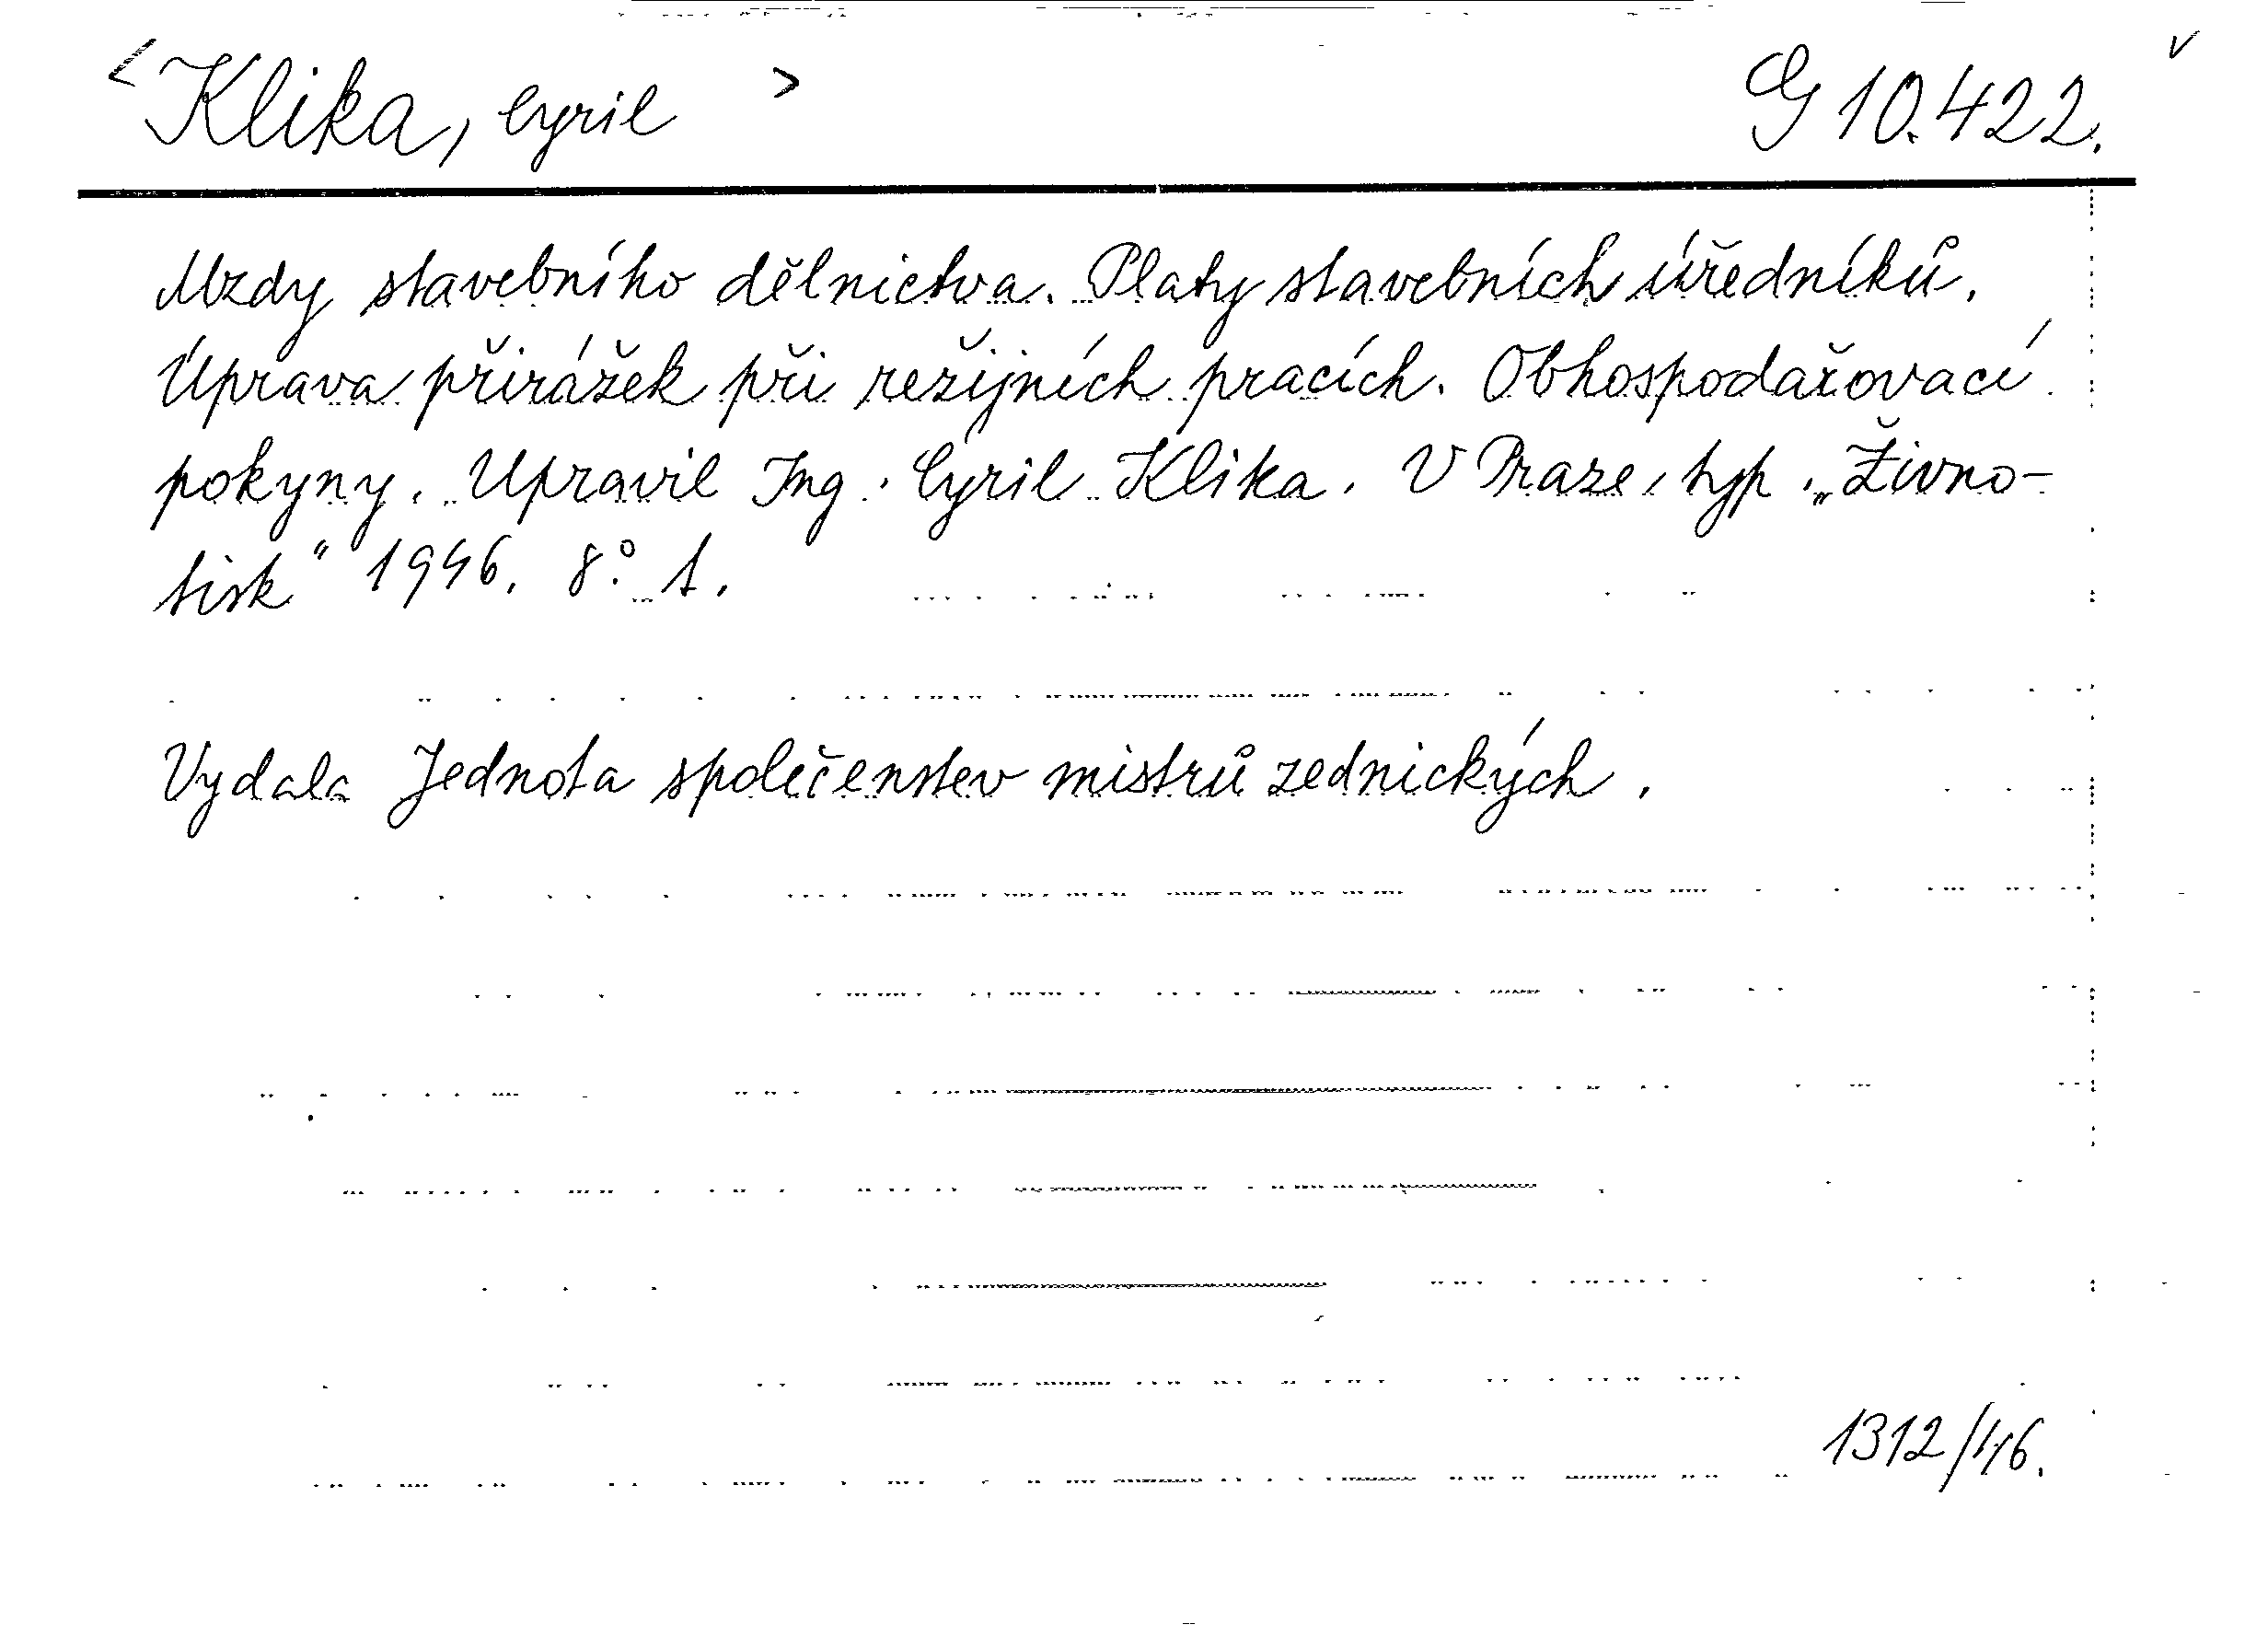 <Klika, Cyril> G 10.422. v
Mzdy stavebního dělnictva. Platy stavebních úředníků.
Úprava přirážek při režijních pracích. Obhospodařovací
pokyny. Upravil Ing. Cyril Klika. V Praze, typ. „Živno-
tisk" 1946. 8°. 1.
Vydala Jednota společenstev mistrů zednických.
1312/46.